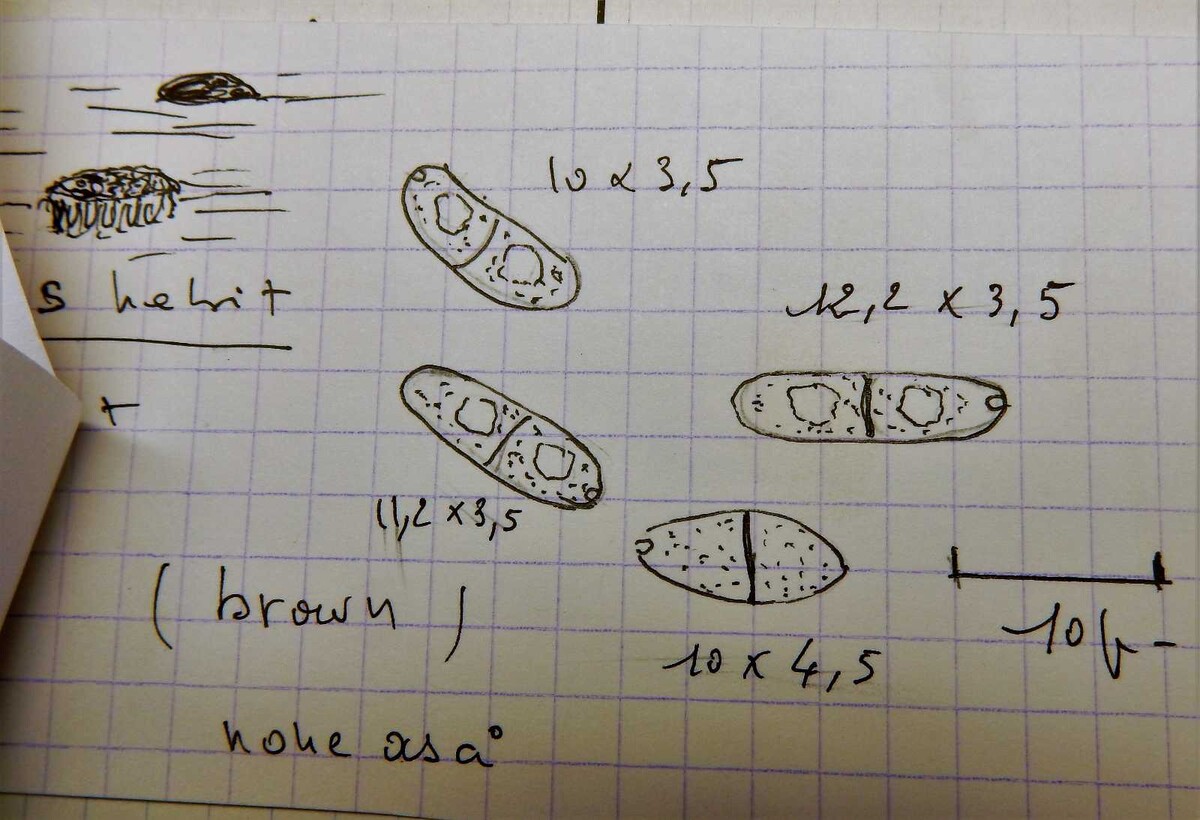 10 x 3,5
12,2 x 3,5
+
11,2 x 3,5
(brown)
10 x 4,5
10 µ